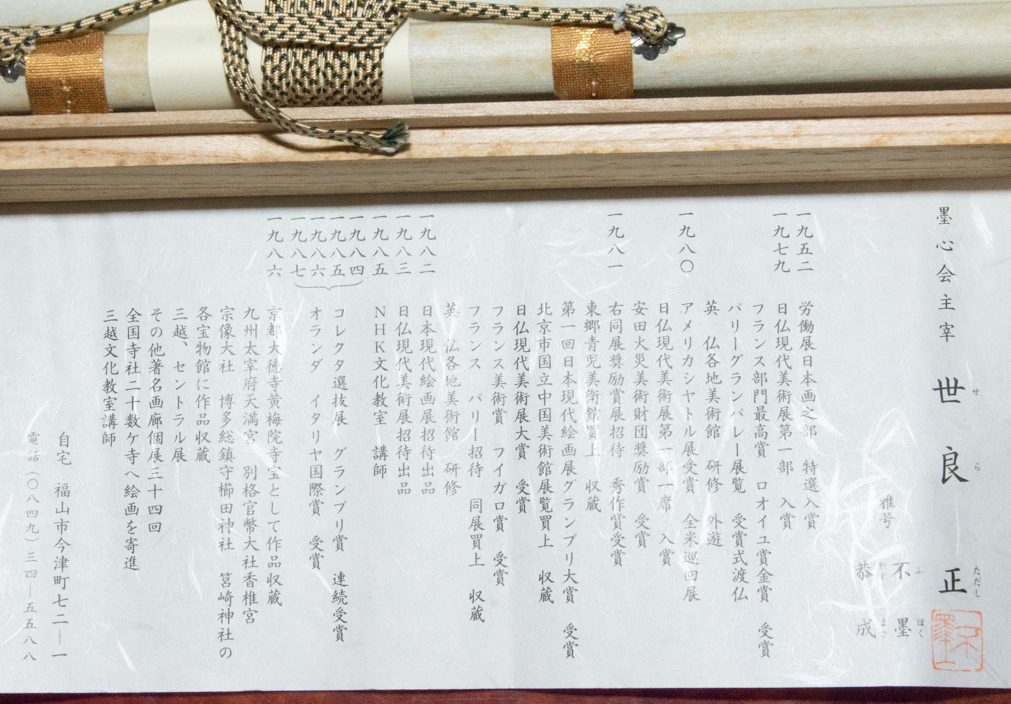 墨心会主宰 世良 正
せ ら ただし
雅号 不墨
ふ ぼく
恭成
一九五二 労働展日本画之部 特選入賞
一九七九 日仏現代美術展第一部 入賞
フランス部門最高賞 ロオイユ賞金賞 受賞
パリーグランパレー展覧 受賞式渡仏
英 仏各地美術館 研修 外遊
一九八〇 アメリカシヤトル展受賞 全米巡回展
日仏現代美術展第一部一席 入賞
安田火災美術財団奨励賞 受賞
一九八一 右同展奨励賞展招待 秀作賞受賞
東郷青児美術館買上 収蔵
第一回日本現代絵画展グランプリ大賞 受賞
北京市国立中国美術館展覧買上 収蔵
日仏現代美術展大賞 受賞
フランス美術賞 フイガロ賞 受賞
フランス パリー招待 同展買上 収蔵
英 仏各地美術館 研修
一九八二 日本現代絵画展招待出品
一九八三 日仏現代美術展招待出品
一九八五 NHK文化教室 講師
一九八四
一九八五 コレクタ選抜展 グランプリ賞 連続受賞
一九八六 オランダ イタリヤ国際賞 受賞
一九八七
一九八六 京都大徳寺黄梅院寺宝として作品収蔵
九州太宰府天満宮 別格官幣大社香椎宮
宗像大社 博多総鎮守櫛田神社 筥崎神社の
各宝物館に作品収蔵
三越、セントラル展
その他著名画廊個展三十四回
全国寺社二十数ケ寺へ絵画を寄進
三越文化教室講師
自宅 福山市今津町七二―一
電話(〇八四九)三四―五五八八